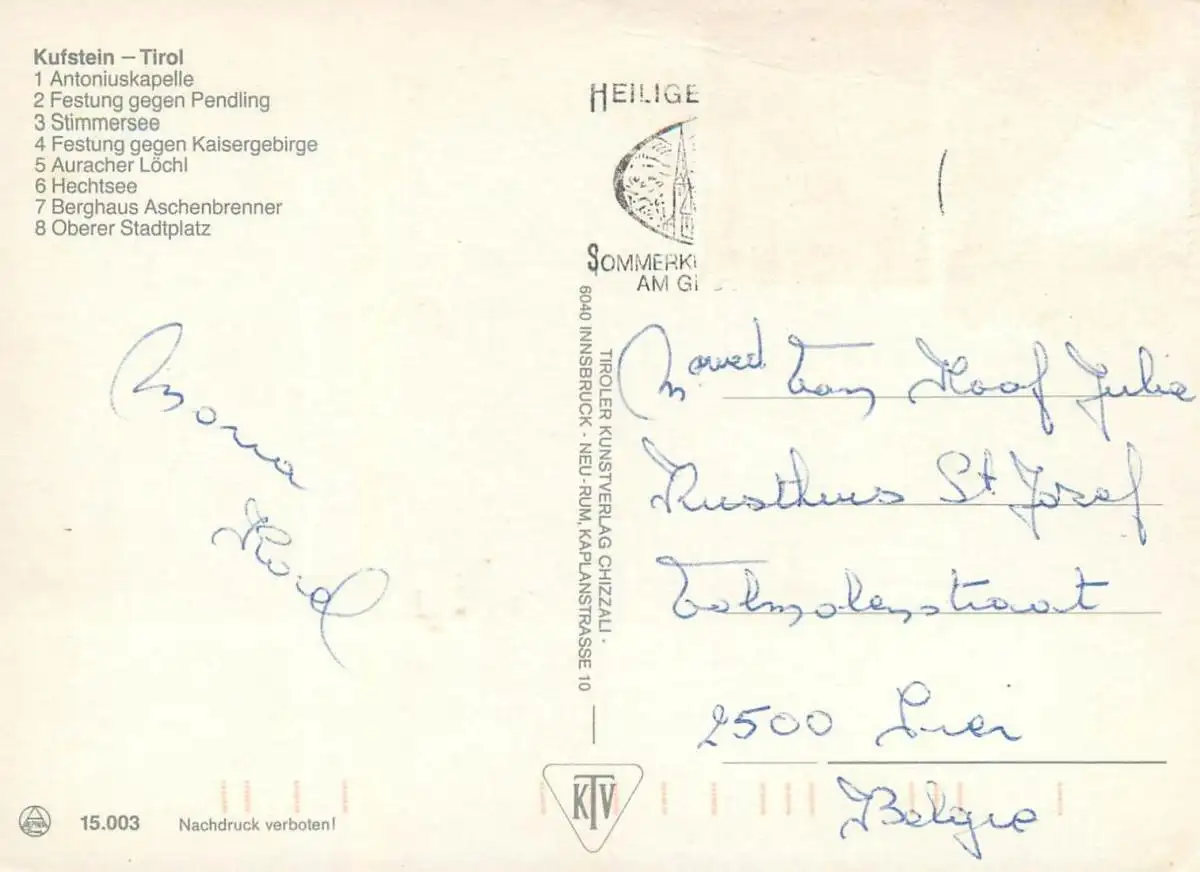 Kufstein – Tirol
1 Antoniuskapelle
2 Festung gegen Pendling
3 Stimmersee
4 Festung gegen Kaisergebirge
5 Auracher Löchl
6 Hechtsee
7 Berghaus Aschenbrenner
8 Oberer Stadtplatz
HEILIGE
SOMMERK
AM G
Maria
Karel
TIROLER KUNSTVERLAG CHIZZALI -
6040 INNSBRUCK - NEU-RUM, KAPLANSTRASSE 10
Van Hoof Julia
Rusthuis St. Jozef
2500 Lier
Belgie
KTV
15.003 Nachdruck verboten!